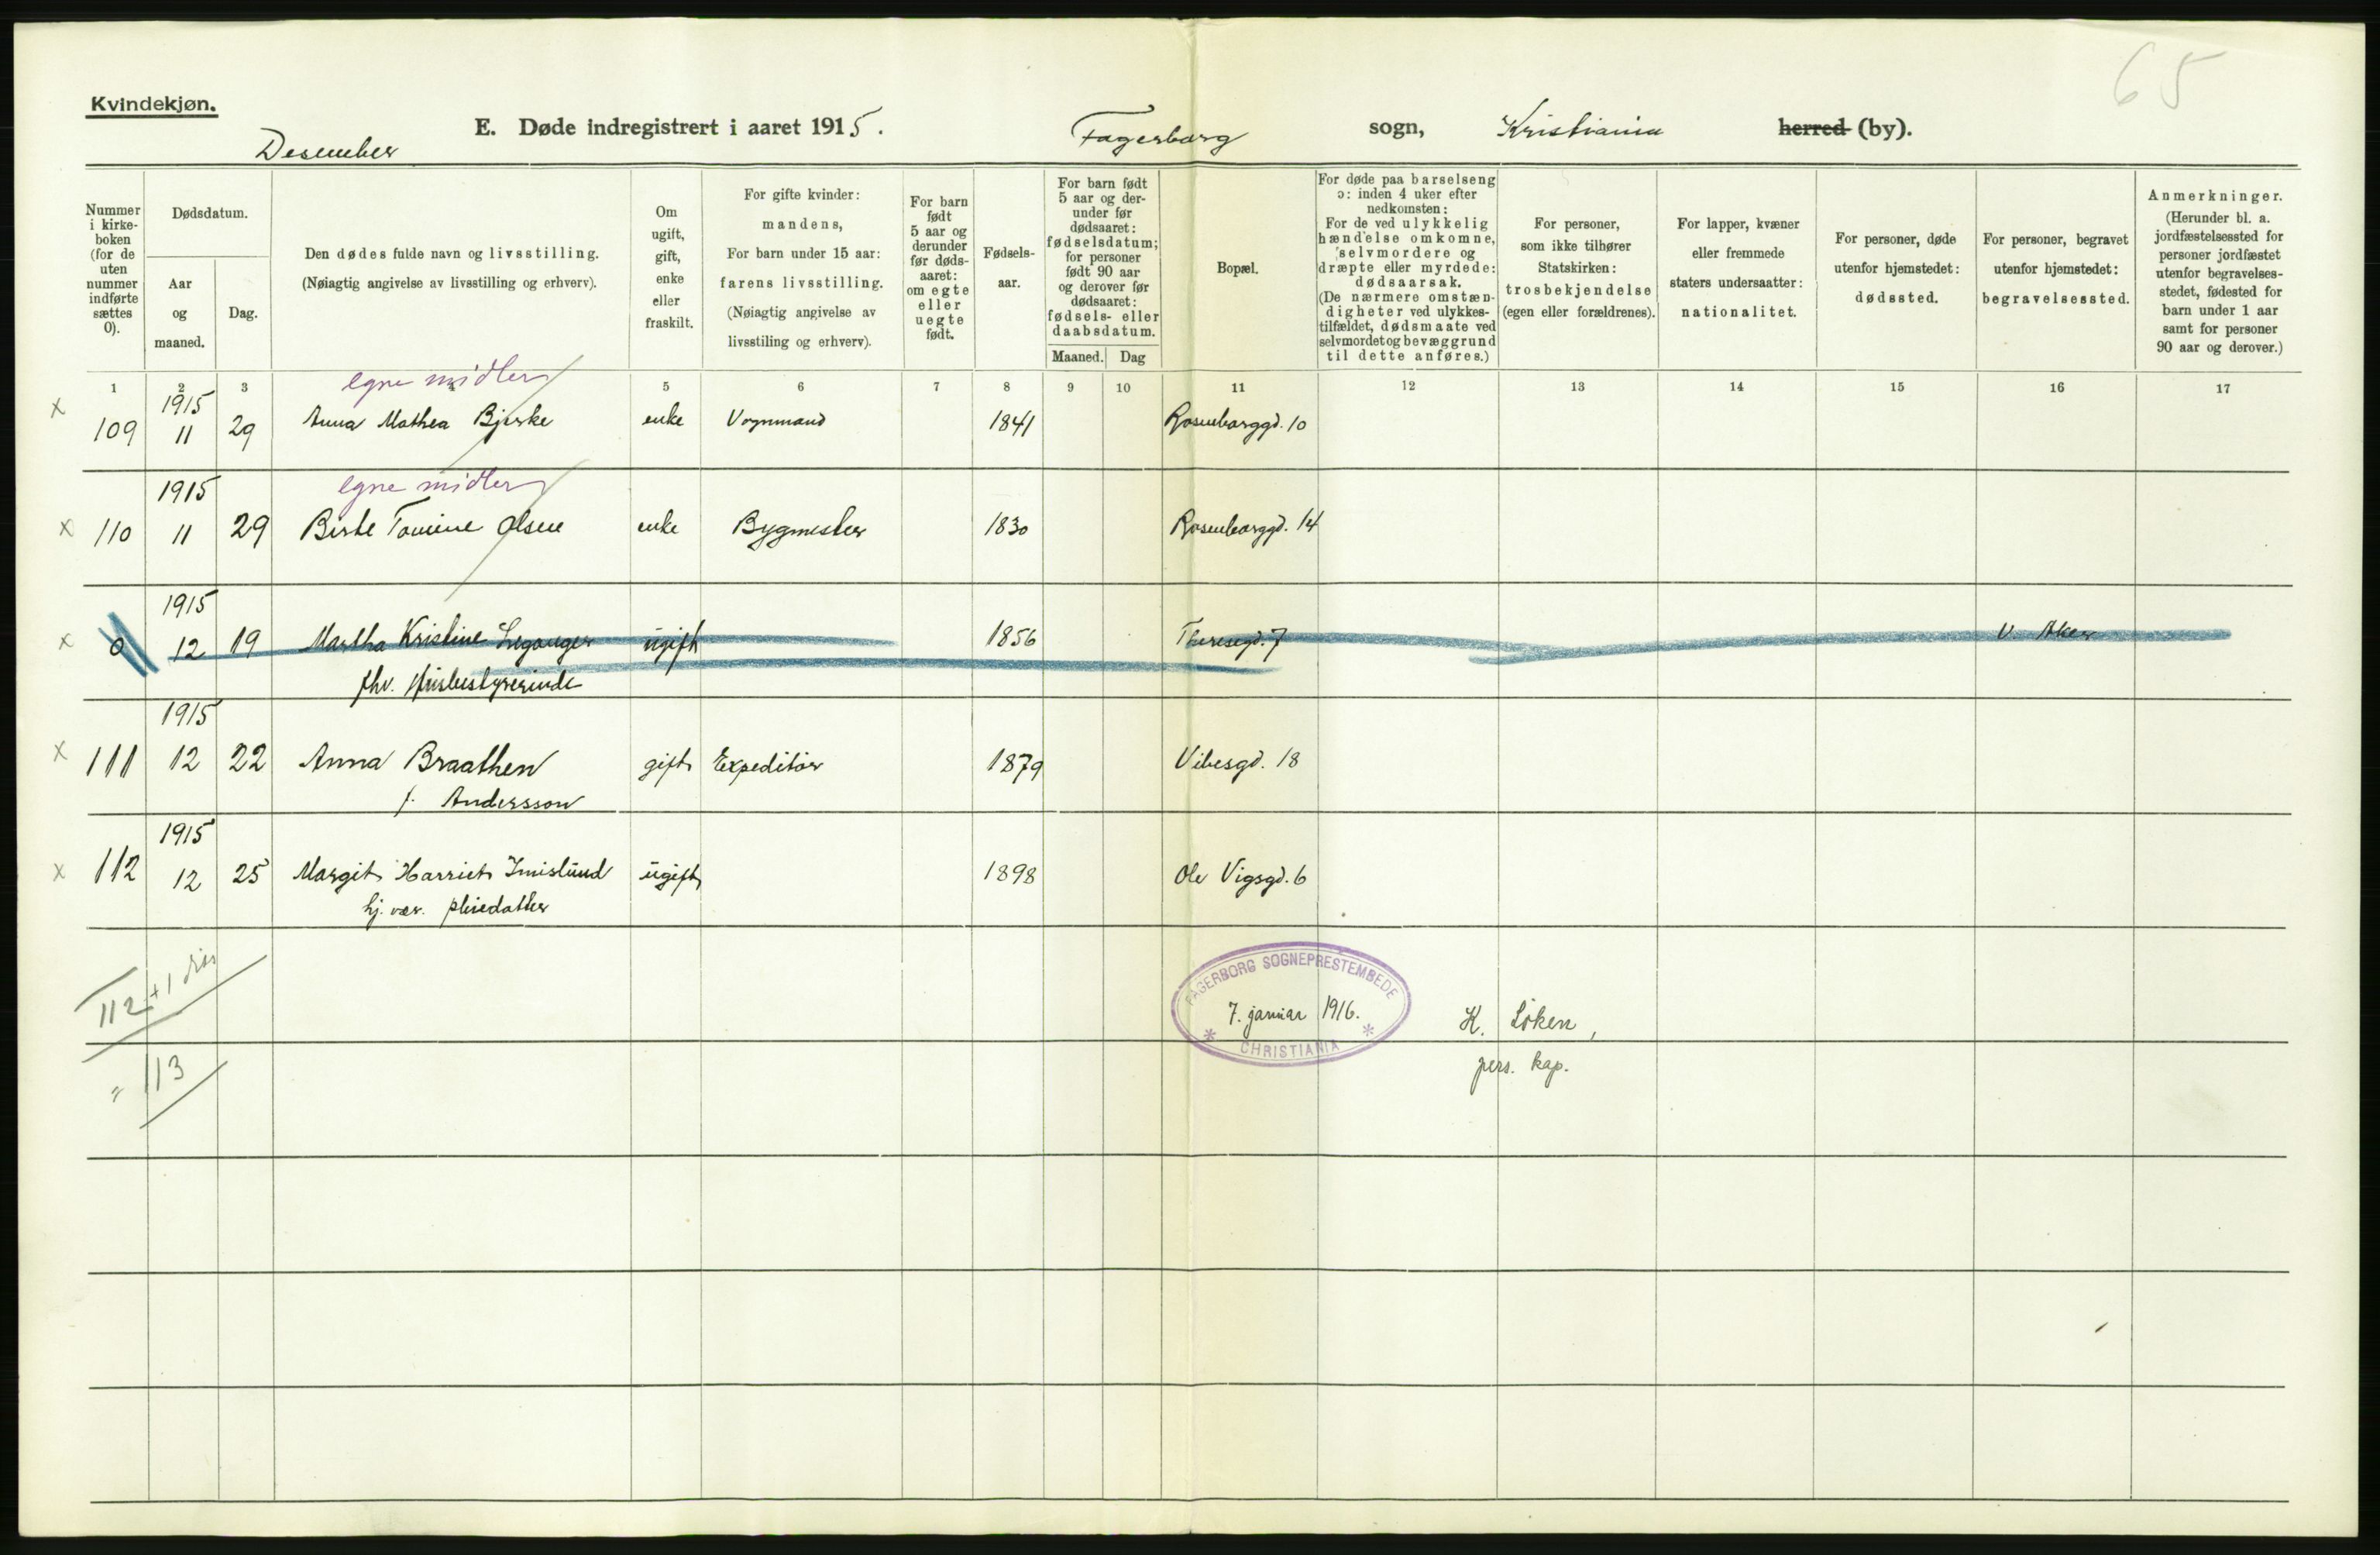 65
Kvindekjøn.
E. Døde indregistrert i aaret 1915. Fagerborg sogn, Kristiania herred (by).
Desember
Nummer i kirkeboken (for de uten nummer indførte sættes 0).
Dødsdatum.
Aar og maaned.
Dag.
Den dødes fulde navn og livsstilling.
(Nøiagtig angivelse av livsstilling og erhverv).
Om ugift, gift, enke eller fraskilt.
For gifte kvinder: mandens,
For barn under 15 aar: farens livsstilling.
(Nøiagtig angivelse av livsstiling og erhverv).
For barn født 5 aar og derunder før dødsaaret: om egte eller uegte født.
Fødselsaar.
For barn født 5 aar og derunder før dødsaaret: fødselsdatum; for personer født 90 aar og derover før dødsaaret: fødsels- eller daabsdatum.
Maaned. Dag
Bopæl.
For døde paa barselseng ɔ: inden 4 uker efter nedkomsten:
For de ved ulykkelig hændelse omkomne, selvmordere og dræpte eller myrdede: dødsaarsak.
(De nærmere omstændigheter ved ulykkestilfældet, dødsmaate ved selvmordet og bevæggrund til dette anføres.)
For personer, som ikke tilhører Statskirken: trosbekjendelse (egen eller forældrenes).
For lapper, kvæner eller fremmede staters undersaatter: nationalitet.
For personer, døde utenfor hjemstedet: dødssted.
For personer, begravet utenfor hjemstedet: begravelsessted.
Anmerkninger.
(Herunder bl. a. jordfæstelsessted for personer jordfæstet utenfor begravelsesstedet, fødested for barn under 1 aar samt for personer 90 aar og derover.)
1 2 3 4 5 6 7 8 9 10 11 12 13 14 15 16 17
egne midler
x 109 1915 11 29 Anna Mathea Bjerke enke Vognmand 1841 Rosenborggd. 10
egne midler
x 110 1915 11 29 Birte Tomine Olsen enke Bygmester 1830 Rosenborggd. 14
x 0 1915 12 19 Martha Kristine Leganger ugift 1856 Theresegd. 7 V. Aker
fhv. Husbestyrerinde
x 111 1915 12 22 Anna Braathen gift Expeditør 1879 Vibesgd. 18
f. Andersson
x 112 1915 12 25 Margit Harriet Imislund ugift 1898 Ole Vigsgd. 6
hj. vær. pleiedatter
112 + 1
= 113
FAGERBORG SOGNEPRESTEMBEDE
7. januar 1916.
* CHRISTIANIA *
K. Löken,
pers. kap.